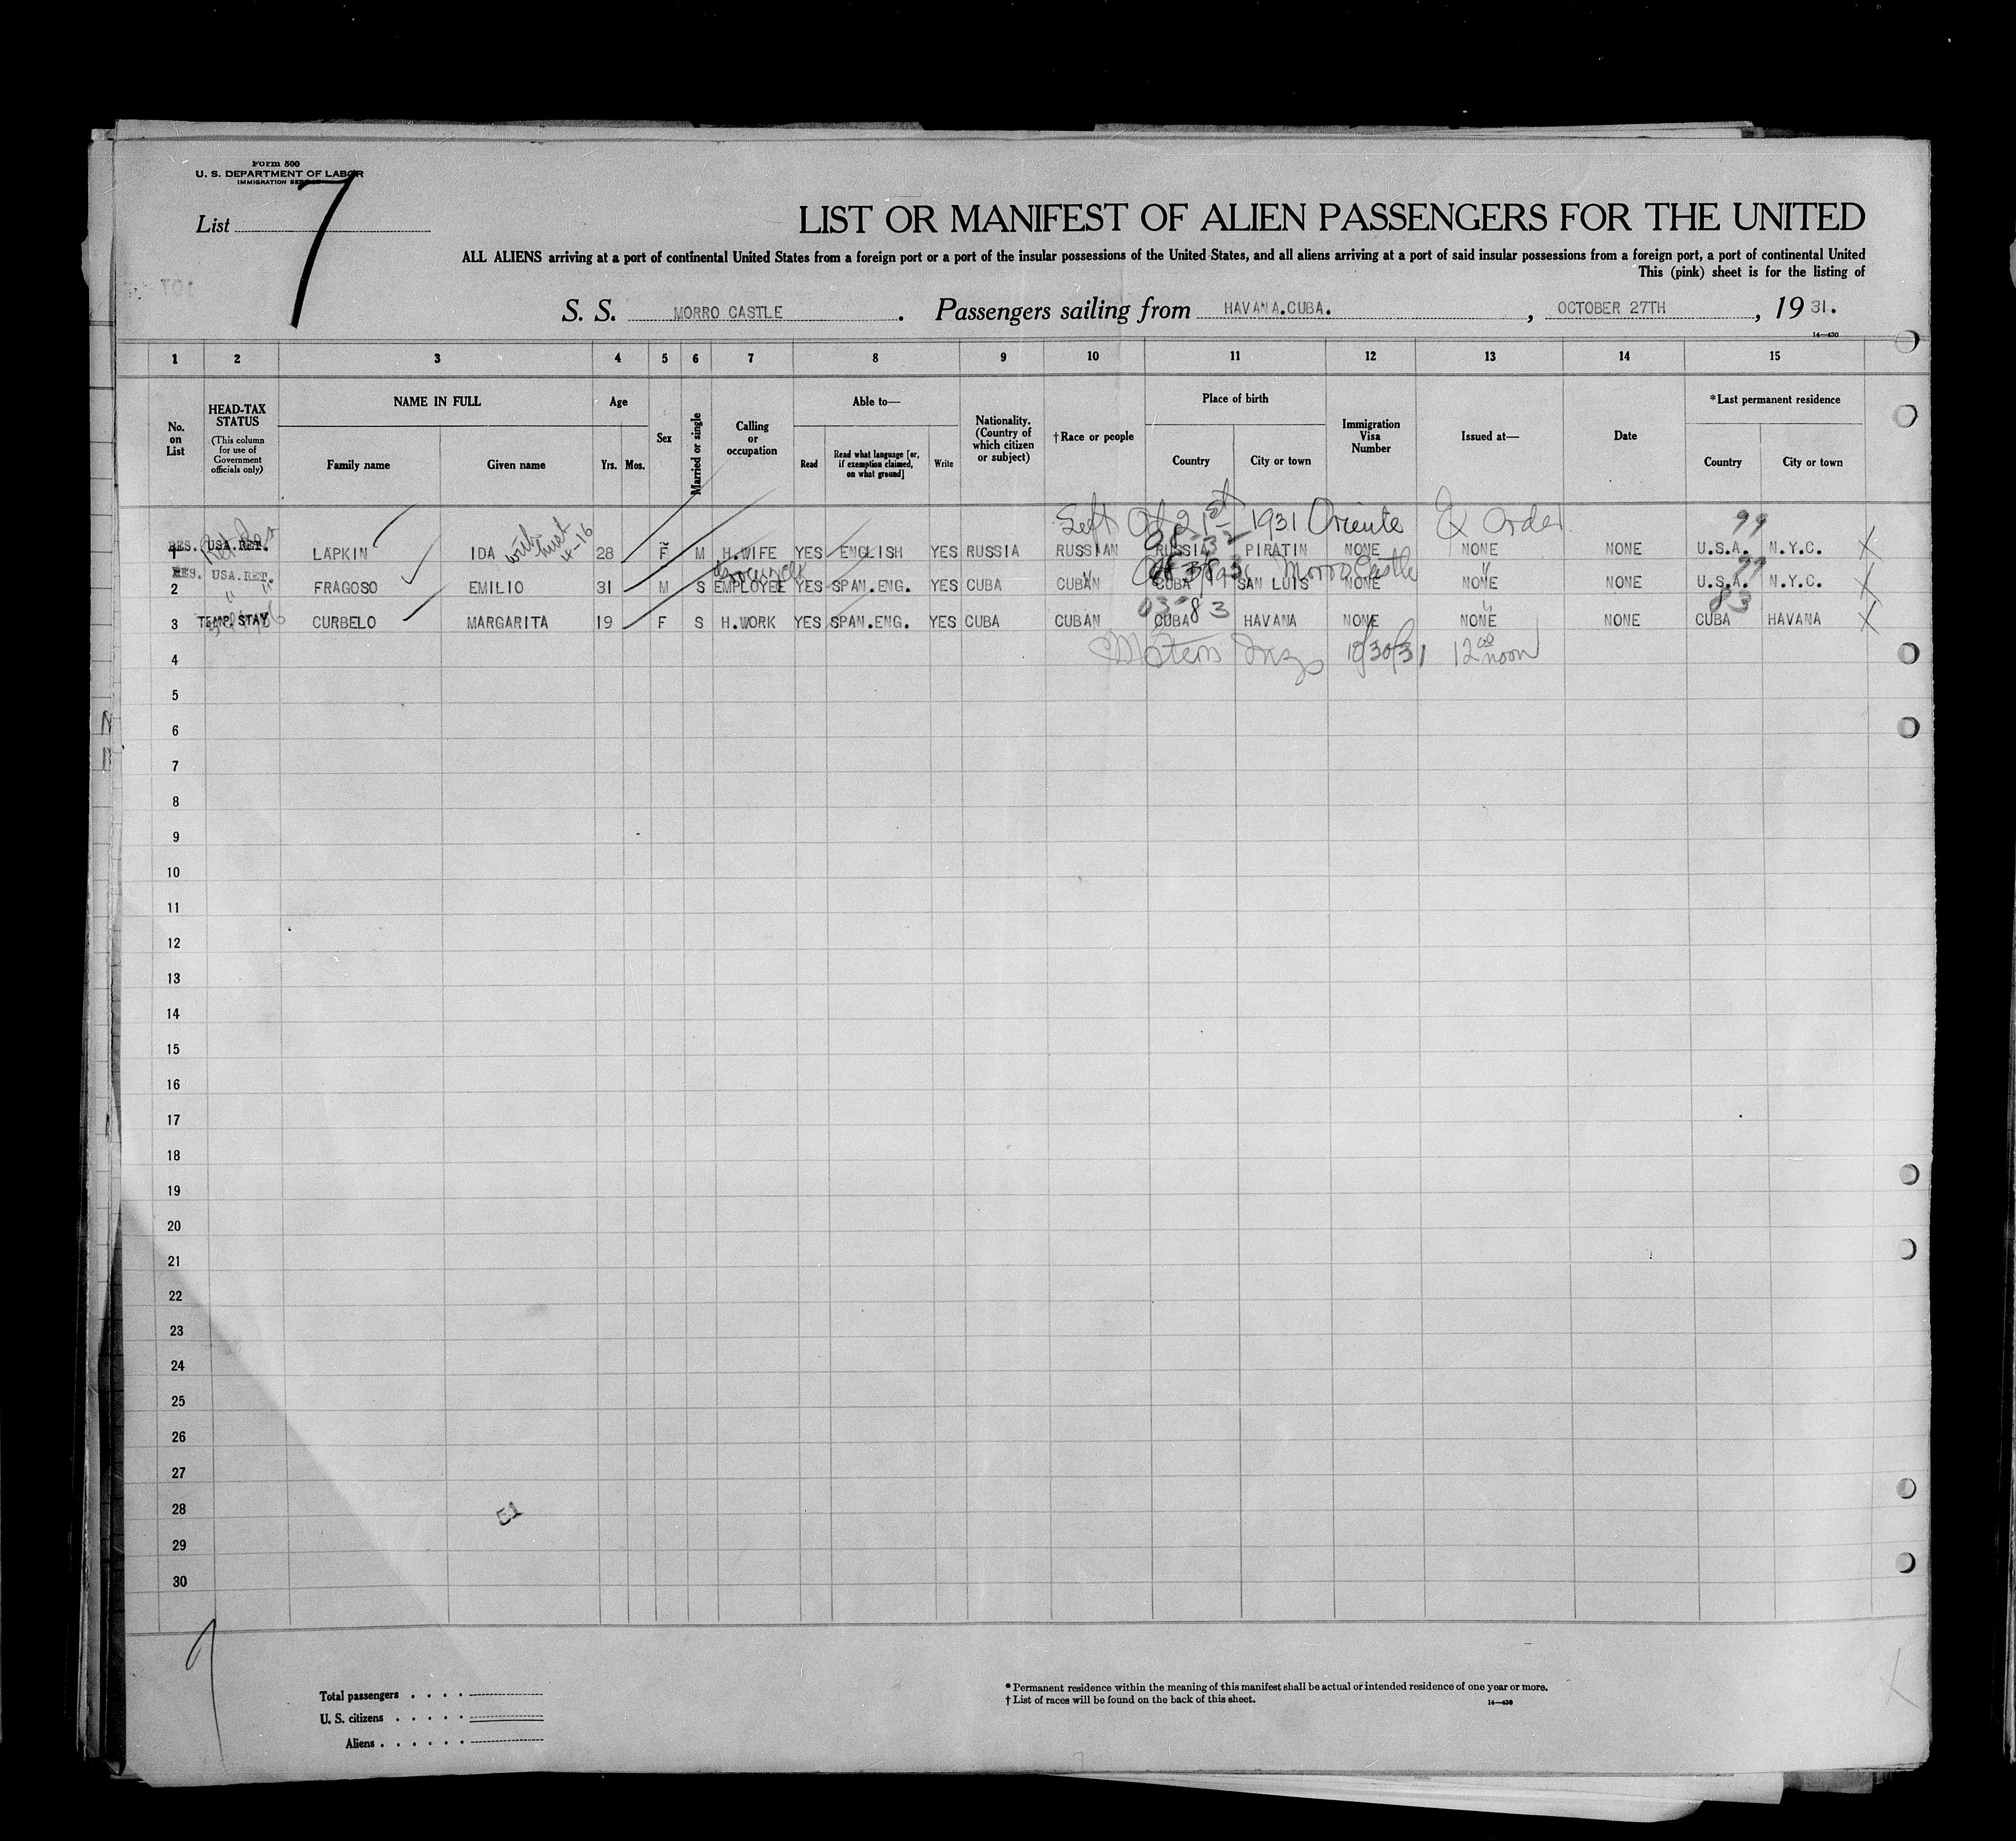 Form 500
U. S. DEPARTMENT OF LABOR
IMMIGRATION SERVICE
List 7
LIST OR MANIFEST OF ALIEN PASSENGERS FOR THE UNITED
ALL ALIENS arriving at a port of continental United States from a foreign port or a port of the insular possessions of the United States, and all aliens arriving at a port of said insular possessions from a foreign port, a port of continental United
This (pink) sheet is for the listing of
S. S. MORRO CASTLE . Passengers sailing from HAVANA.CUBA. , OCTOBER 27TH , 19 31.
14—430
1 2 3 4 5 6 7 8 9 10 11 12 13 14 15
No. on List
HEAD-TAX STATUS (This column for use of Government officials only)
NAME IN FULL
Family name
Given name
Age
Yrs. Mos.
Sex
Married or single
Calling or occupation
Able to—
Read
Read what language [or, if exemption claimed, on what ground]
Write
Nationality. (Country of which citizen or subject)
† Race or people
Place of birth
Country
City or town
Immigration Visa Number
Issued at—
Date
*Last permanent residence
Country
City or town
Left Oct 21st 1931 Oriente Ex Order 99
1 RES. USA.RET. LAPKIN IDA with husb 4-16 28 F M H.WIFE YES ENGLISH YES RUSSIA RUSSIAN RUSSIA PIRATIN NONE NONE NONE U.S.A. N.Y.C. X
Morro Castle 99
2 RES. USA.RET. FRAGOSO EMILIO 31 M S EMPLOYEE YES SPAN.ENG. YES CUBA CUBAN CUBA SAN LUIS NONE NONE NONE U.S.A. N.Y.C. X
83
3 TEMP.STAY CURBELO MARGARITA 19 F S H.WORK YES SPAN.ENG. YES CUBA CUBAN CUBA HAVANA NONE NONE NONE CUBA HAVANA X
4 10/30/31 12 00 noon
5
6
7
8
9
10
11
12
13
14
15
16
17
18
19
20
21
22
23
24
25
26
27
28
29
30
Total passengers . . . .
U. S. citizens . . . . .
Aliens . . . . . .
* Permanent residence within the meaning of this manifest shall be actual or intended residence of one year or more.
† List of races will be found on the back of this sheet.
14—430